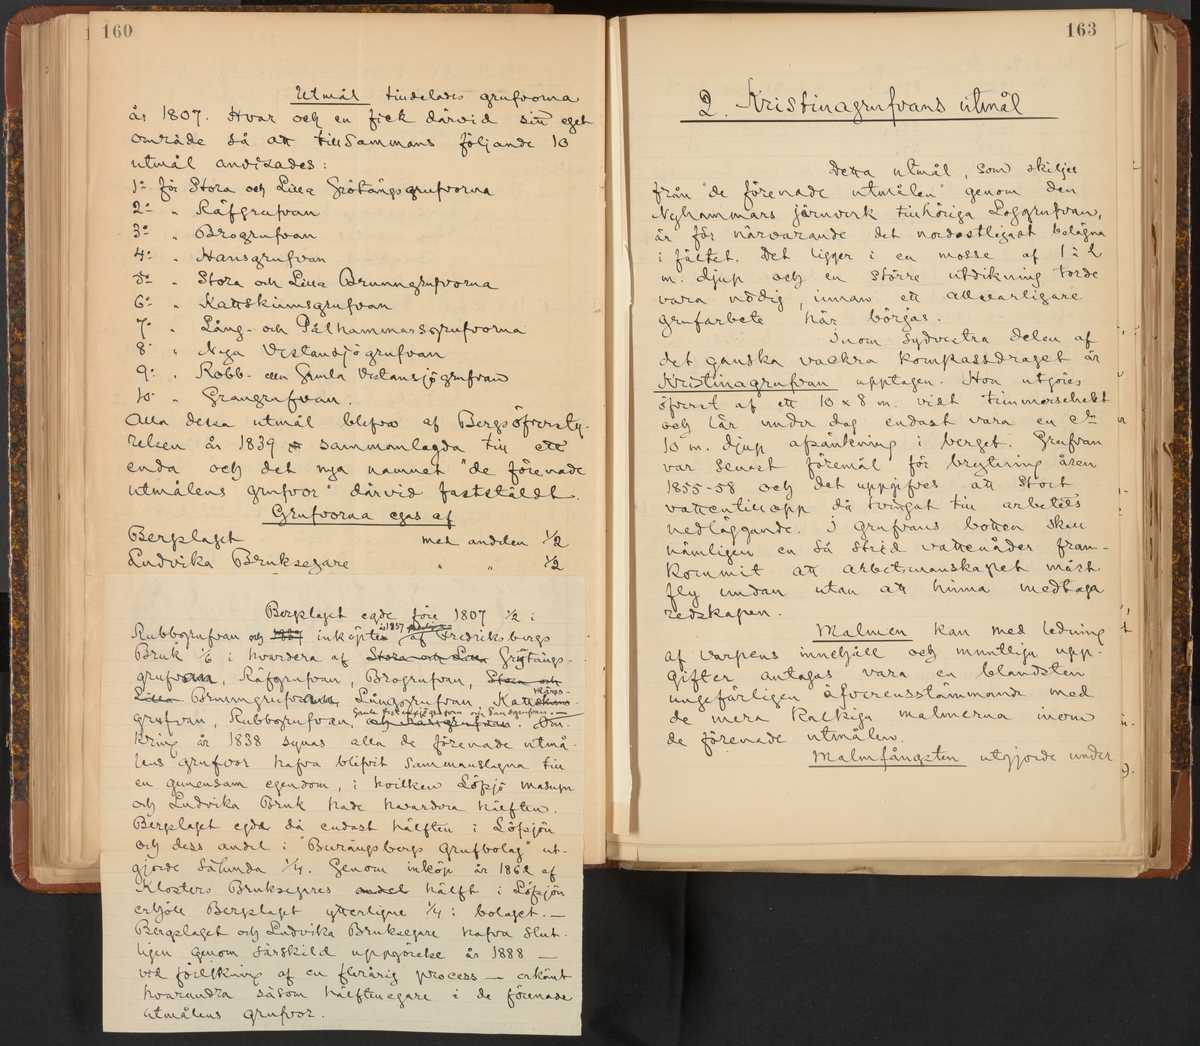 160
Utmål tilldelades grufvorna
år 1807. Hvar och en fick därvid sitt eget
område så att tillsammans följande 10
utmål anvisades:
1:o för Stora och Lilla Grötängsgrufvorna
2:o " Räfgrufvan
3:o " Brogrufvan
4:o " Hansgrufvan
5:o " Stora och Lilla Brunngrufvorna
6:o " Kattskinnsgrufvan
7:o " Lång- och Pålhammarsgrufvorna
8:o " Nya Vestansjögrufvan
9:o " Robb- eller Gamla Vestansjögrufvan
10:o " Grangrufvan.
Alla dessa utmål blefvo af Bergsöfversty-
relsen år 1839 sammanlagda till ett
enda och det nya namnet "de förenade
utmålens grufvor" därvid fastställdt.
Grufvorna egas af
Bergslaget med andelen 1/2
Ludvika Bruksegare " " 1/2
Bergslaget egde före 1807 1/2 i
Rubbogrufvan och 1837 inköptes af Fredriksbergs
Bruk 1/6 i hvardera af Stora och Lilla Grötängs-
grufvan, Räfgrufvan, Brogrufvan, Stora och
Lilla Brunngrufvan, Långgrufvan, Kattskinns-
grufvan, Rubbogrufvan, och Grangrufvan. Om-
kring år 1838 synas alla de förenade utmå-
lens grufvor hafva blifvit sammanslagna till
en gemensam egendom, i hvilken Löfsjö masugn
och Ludvika Bruk hade hvardera hälften.
Bergslaget egde då endast hälften i Löfsjön
och dess andel i "Burängsbergs Grufbolag" ut-
gjorde sålunda 1/4. Genom inköp år 1862 af
Klosters Bruksegares andel hälft i Löfsjön
erhöll Bergslaget ytterligare 1/4 i bolaget. —
Bergslaget och Ludvika Bruksegare hafva slut-
ligen genom särskild uppgörelse år 1888 —
vid förlikning af en flerårig process — erkänt
hvarandra såsom hälftenegare i de förenade
utmålens grufvor.
163
2. Kristinagrufvans utmål
Detta utmål, som skiljes
från "de förenade utmålen" genom den
Nyhammars järnverk tillhöriga Loggrufvan,
är för närvarande det nordostligast belägna
i fältet. Det ligger i en mosse af 1 à 2
m. djup och en större utdikning torde
vara nödig, innan ett allvarligare
grufarbete här börjas.
Inom sydvestra delen af
det ganska vackra kompassdraget är
Kristinagrufvan upptagen. Hon utgöres
öfverst af ett 10 x 8 m. vidt timmerschakt
och lär under dag endast vara en c:a
10 m. djup afsänkning i berget. Grufvan
var senast föremål för brytning åren
1855-58 och det uppgifves att stort
vattentillopp då tvingat till arbetets
nedläggande. I grufvans botten skall
nämligen en så strid vattenåder fram-
kommit att arbetsmanskapet måst
fly undan utan att hinna medtaga
redskapen.
Malmen kan med ledning
af varpens innehåll och muntliga upp-
gifter antagas vara en blandsten
ungefärligen öfverensstämmande med
de mera kalkiga malmerna inom
de förenade utmålen.
Malmfångsten utgjorde under